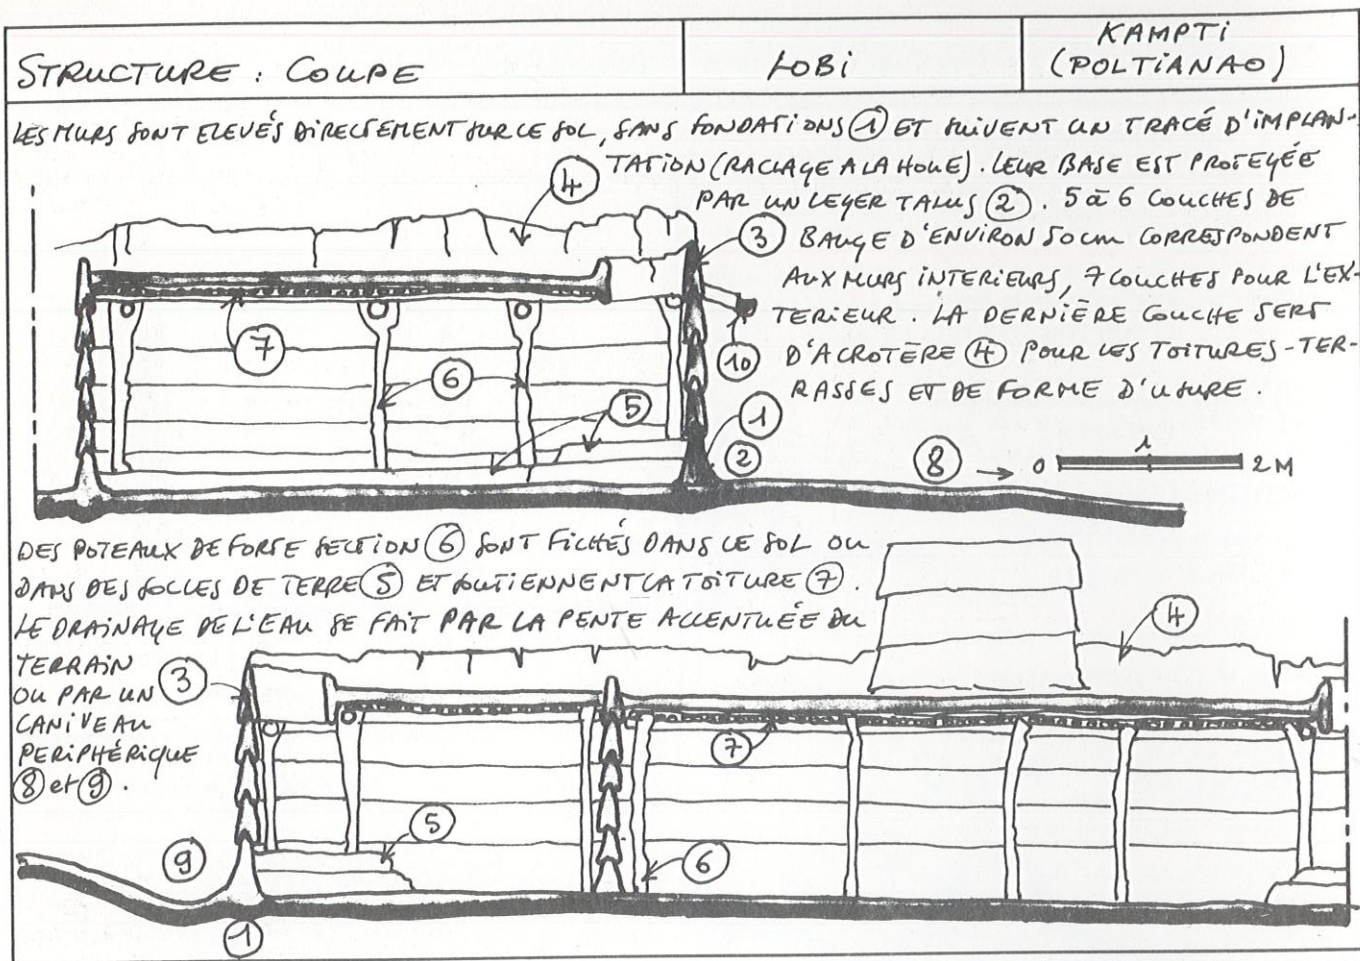 STRUCTURE : COUPE
LOBi
KAMPTi
(POLTiANAO)
LES MURS SONT ELEVÉS DiRECTEMENT SUR LE SOL, SANS FONDATiONS ① ET SUiVENT UN TRACÉ D'iMPLAN-
TATiON (RACLAGE A LA HOUE). LEUR BASE EST PROTEGÉE
PAR UN LEGER TALUS ②. 5 à 6 COUCHES DE
BAUGE D'ENViRON 50 cm CORRESPONDENT
AUX MURS iNTERiEURS, 7 COUCHES POUR L'EX-
TERiEUR. LA DERNiÈRE COUCHE SERT
D'ACROTÈRE ④ POUR LES TOiTURES-TER-
RASSES ET DE FORME D'USURE.
④
③
⑦
⑥
⑩
⑤
①
②
⑧ → 0 1 2 M
DES POTEAUX DE FORTE SECTiON ⑥ SONT FiCHÉS DANS LE SOL OU
DANS DES SOCLES DE TERRE ⑤ ET SOUTiENNENT LA TOiTURE ⑦.
LE DRAiNAGE DE L'EAU SE FAiT PAR LA PENTE ACCENTUÉE DU
TERRAiN
OU PAR UN
CANiVEAU
PERiPHÉRiQUE
⑧ et ⑨.
③
④
⑦
⑤
⑥
⑨
①